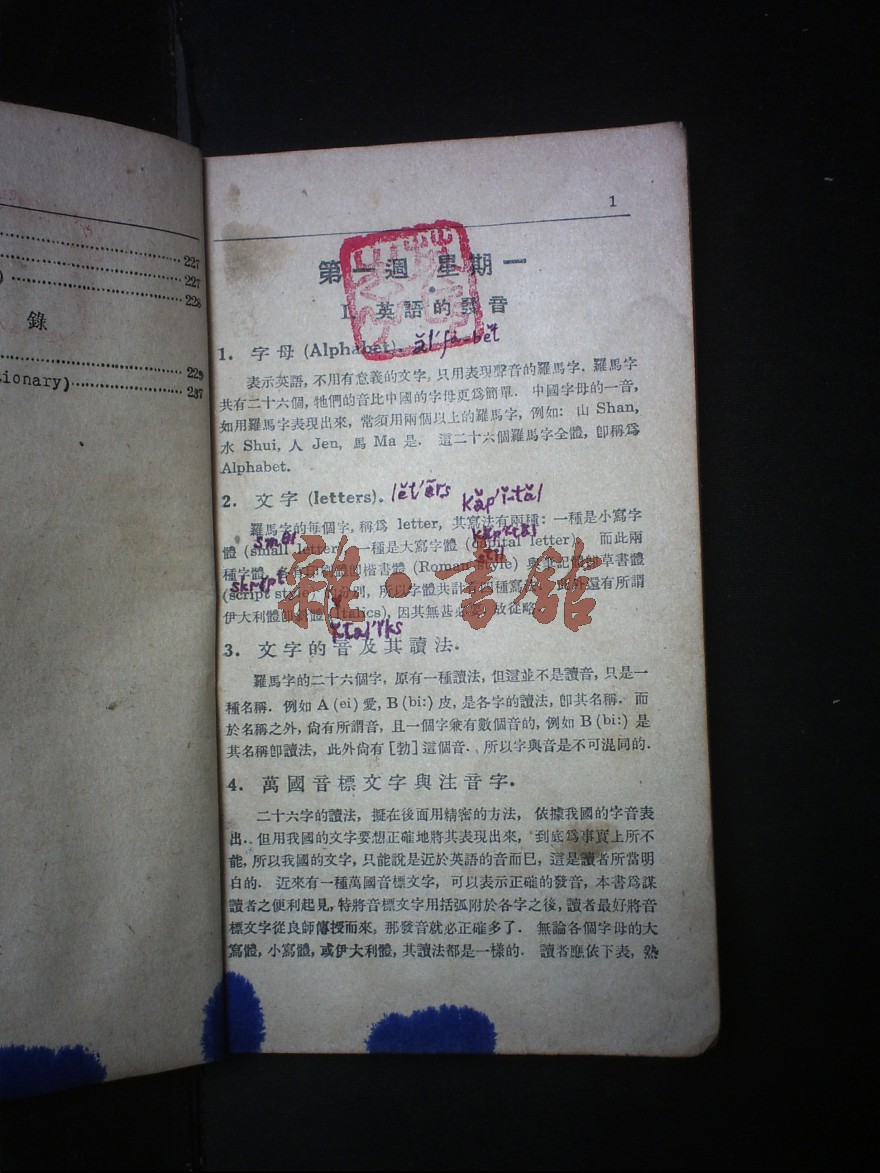 227
227
228
錄
229
ionary) 237
1
第一週 星期一
I. 英語的發音
1. 字母 (Alphabet). ăl'fȧ-bĕt
表示英語, 不用有意義的文字, 只用表現聲音的羅馬字. 羅馬字
共有二十六個, 牠們的音比中國的字母更爲簡單. 中國字母的一音,
如用羅馬字表現出來, 常須用兩個以上的羅馬字, 例如: 山 Shan,
水 Shui, 人 Jen, 馬 Ma 是. 這二十六個羅馬字全體, 卽稱爲
Alphabet.
2. 文字 (letters). lĕt'ẽrs
kăp'ĭ-tăl
羅馬字的每個字, 稱爲 letter, 其寫法有兩種: 一種是小寫字
體 (small letter) 一種是大寫字體 (capital letter). 而此兩
種字體, 的楷書體 (Roman style) 與筆記體卽草書體
(script style) 的分別, 所以字體共計有四種寫法. 此外還有所謂
伊大利體卽斜體 (Italics), 因其無甚必要, 故從略.
ĭtal'ĭks
3. 文字的音及其讀法.
羅馬字的二十六個字, 原有一種讀法, 但這並不是讀音, 只是一
種名稱. 例如 A (ei) 愛, B (bi:) 皮, 是各字的讀法, 卽其名稱. 而
於名稱之外, 尙有所謂音, 且一個字兼有數個音的, 例如 B (bi:) 是
其名稱卽讀法, 此外尙有 [勃] 這個音. 所以字與音是不可混同的.
4. 萬國音標文字與注音字.
二十六字的讀法, 擬在後面用精密的方法, 依據我國的字音表
出. 但用我國的文字要想正確地將其表現出來, 到底爲事實上所不
能, 所以我國的文字, 只能說是近於英語的音而已, 這是讀者所當明
白的. 近來有一種萬國音標文字, 可以表示正確的發音, 本書爲謀
讀者之便利起見, 特將音標文字用括弧附於各字之後, 讀者最好將音
標文字從良師傳授而來, 那發音就必正確多了. 無論各個字母的大
寫體, 小寫體, 或伊大利體, 其讀法都是一樣的. 讀者應依下表, 熟
雜·書館